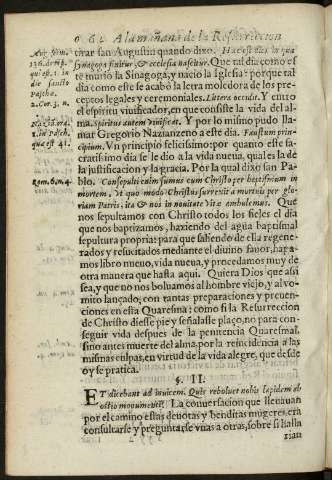 662 A la mañana de la Resurreccion
Aug. serm.
136. de tēp.
qui est. 1. in
die sancto
Paschæ.
2. Cor. 3. n.
tirar san Augustin quando dixo. Hæc est dies in qua
Synagoga finitur, & ecclesia nascitur. Que tal dia como es
te murio la Sinagoga, y nacio la Iglesia: porque tal
dia como este se acabò la letra moledora de los pre-
ceptos legales y ceremoniales. Littera occidit. Y entrò
el espiritu viuificador, en que consiste la vida del al-
ma. spiritus autem viuificat. Y por lo mismo pudo lla-
Nazia. orat.
2. in Pasch.
quæ est 41.
mar Gregorio Nazianzeno a este dia. Faustum prin-
cipium. Vn principio felicissimo: por quanto este sa-
cratissimo dia se le dio a la vida nueua, qual es la de
la justificacion y la gracia. Por la qual dixo san Pa-
Rom. 6. n. 4.
blo. Consepulti enim sumus cum Christo per baptismum in
mortem, Vt quo modo Christus surrexit à mortuis per glo-
riam Patris, ita & nos in nouitate vitæ ambulemus. Que
nos sepultamos con Christo todos los fieles el dia
que nos baptizamos, haziendo del agua baptismal
sepultura propria: para que saliendo de ella regene-
rados y resucitados mediante el diuino fauor, haga-
mos libro nueuo, vida nueua, y procedamos muy de
otra manera que hasta aqui. Quiera Dios que assi
sea, y que no nos boluamos al hombre viejo, y al vo-
mito lançado, con tantas preparaciones y preuen-
ciones en esta Quaresma: como si la Resurreccion
de Christo diesse pie y señalasse plaço, no para con-
seguir vida despues de la penitencia Quaresmal,
sino antes muerte del alma, por la reincidencia a las
mismas culpas, en virtud de la vida alegre, que desde
oy se pratica.
§. II.
ET dicebant ad inuicem. Quis reboluet nobis lapidem ab
ostio monumenti? La conuersacion que lleuauan
por el camino estas deuotas y benditas mugeres, era
consultarse y preguntarse vnas a otras, sobre si halla